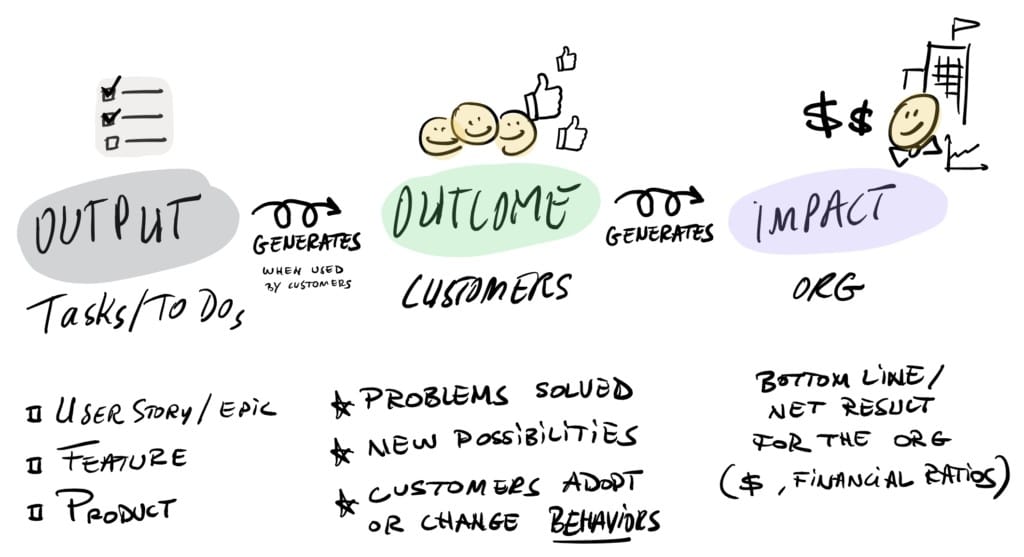 $$
OUTPUT
GENERATES
WHEN USED
BY CUSTOMERS
OUTCOME
GENERATES
IMPACT
Tasks/To Dos
CUSTOMERS
ORG
USER STORY/EPIC
FEATURE
PRODUCT
PROBLEMS SOLVED
NEW POSSIBILITIES
CUSTOMERS ADOPT
OR CHANGE BEHAVIORS
BOTTOM LINE/
NET RESULT
FOR THE ORG
($, FINANCIAL RATIOS)